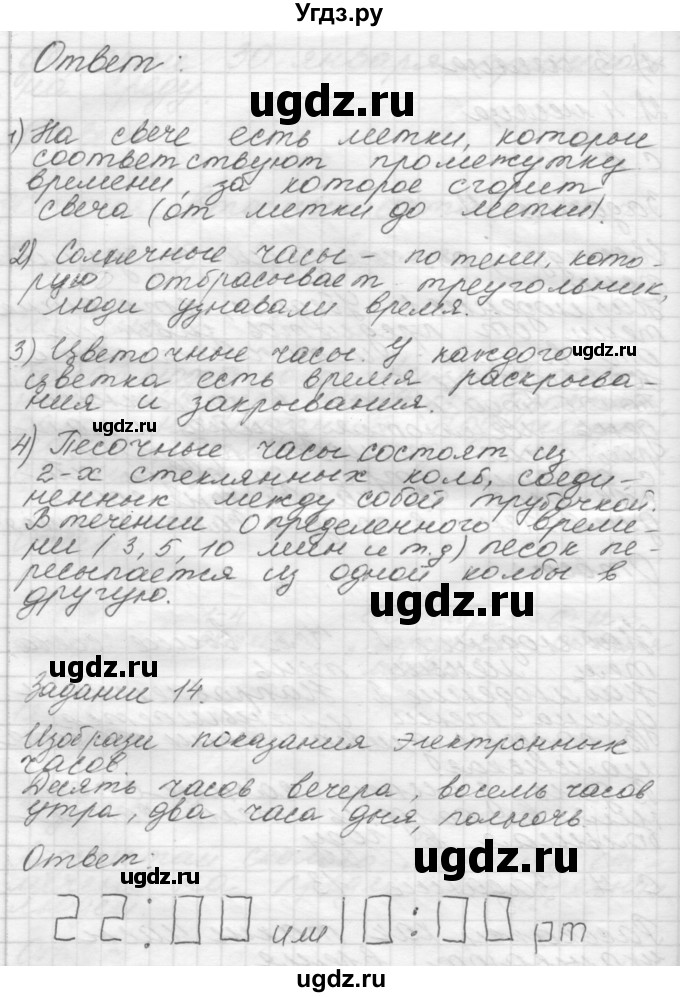 Угдз.ру
Ответ:
ugdz.ru
1) На свече есть метки, которые
соответствуют промежутку
времени, за которое сгорит
свеча (от метки до метки).
2) Солнечные часы - по тени, кото-
рую отбрасывает треугольник,
люди узнавали время.
3) Цветочные часы. У каждого
ugdz.ru
цветка есть время раскрыва-
ния и закрывания.
ugdz.ru
4) Песочные часы состоят из
2-х стеклянных колб, соеди-
ненных между собой трубочкой.
В течении определенного време-
ни (3, 5, 10 мин и т.д) песок пе-
ресыпается из одной колбы в
другую.
ugdz.ru
ugdz.ru
Задании 14.
Изобрази показания электронных
часов
Десять часов вечера, восемь часов
утра, два часа дня, полночь
Ответ:
ugdz.ru
ugdz.ru
22:00 или 10:00 pm
ugdz.ru